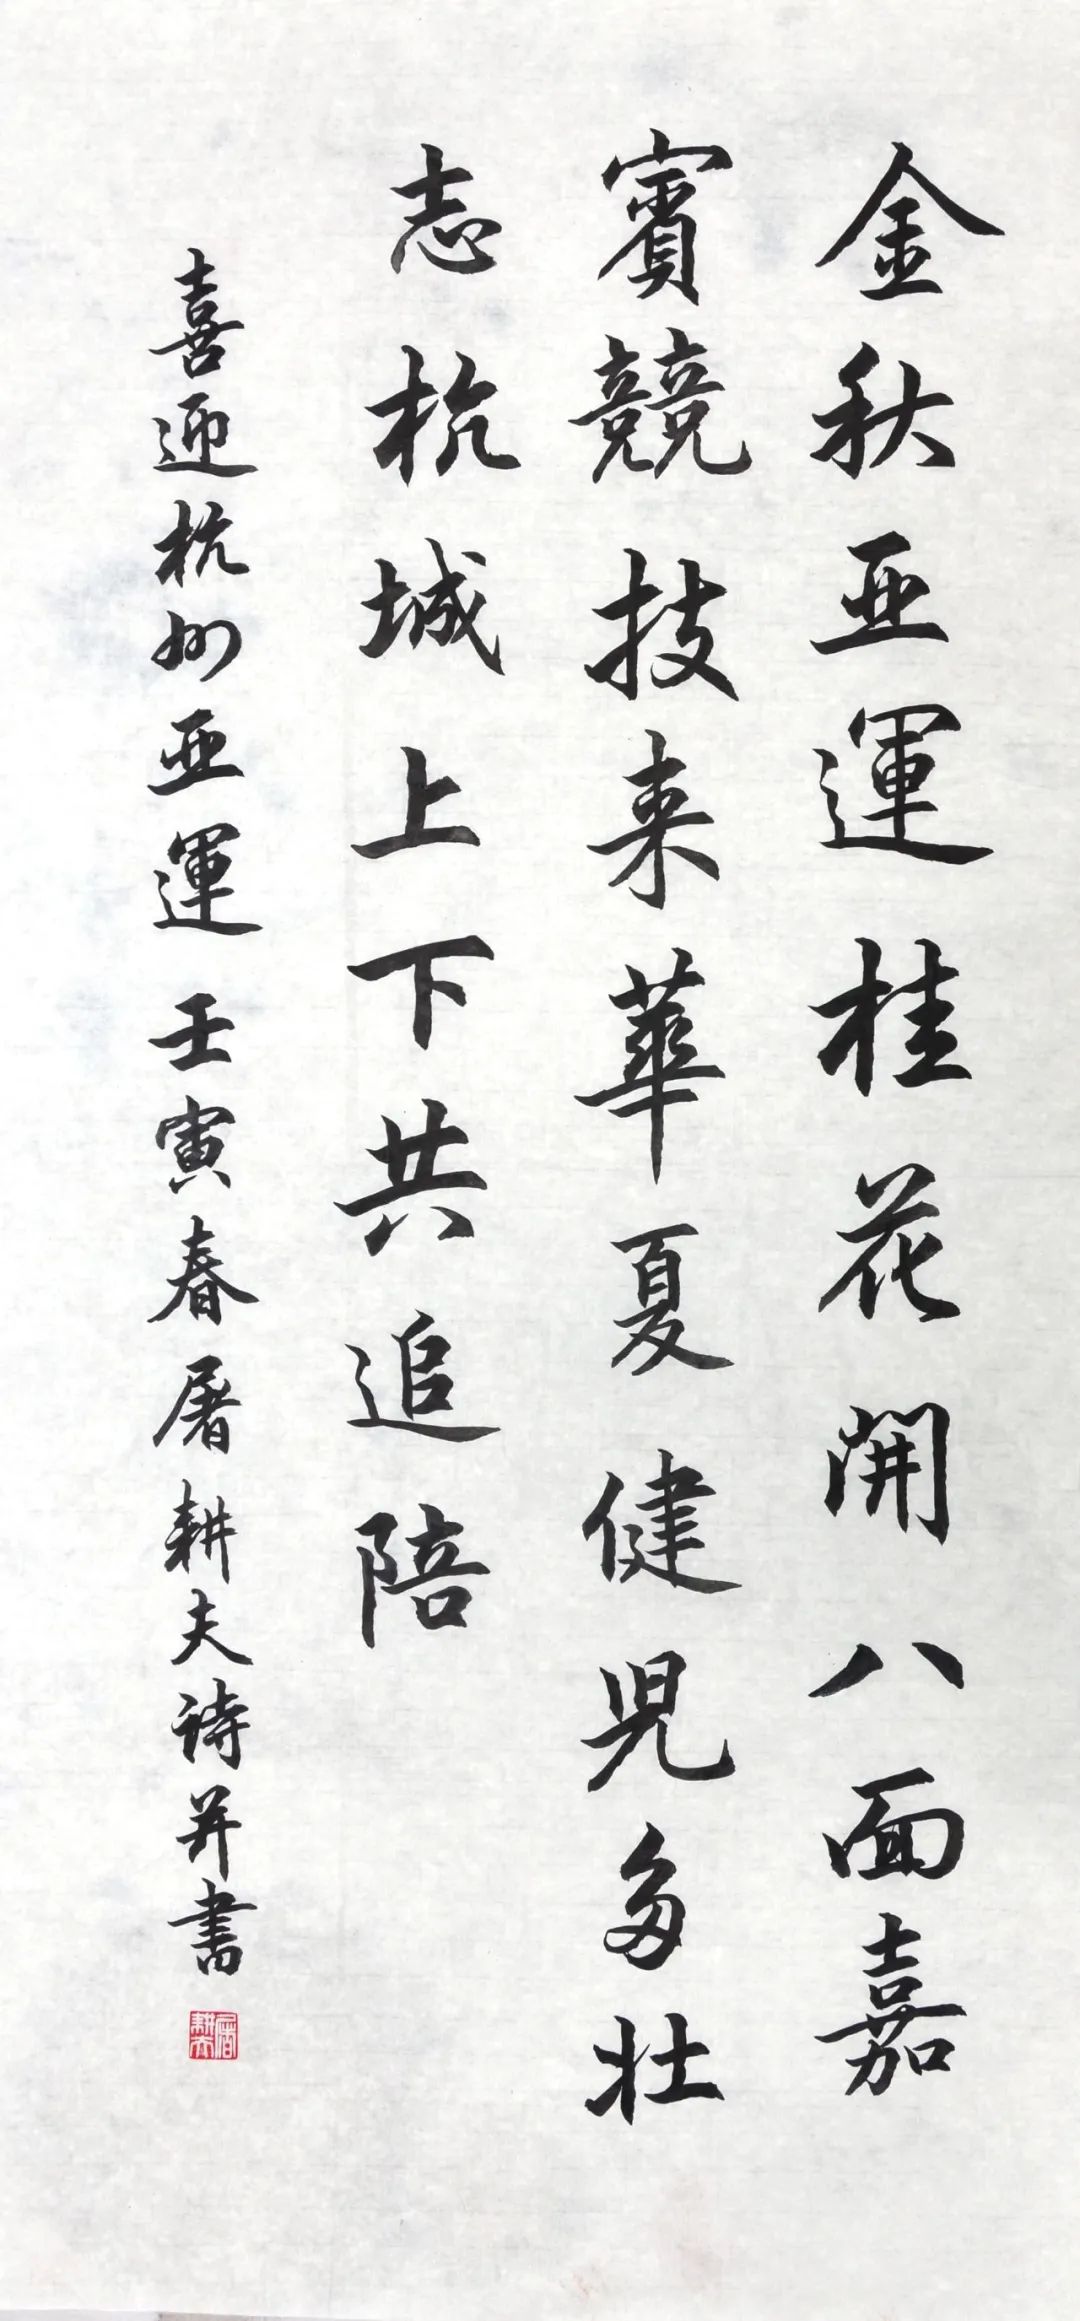 金秋亚運桂花開八面嘉
賓競技来華夏健児多壮
志杭城上下共追陪
喜迎杭州亚運 壬寅春屠耕夫诗并書
屠耕夫